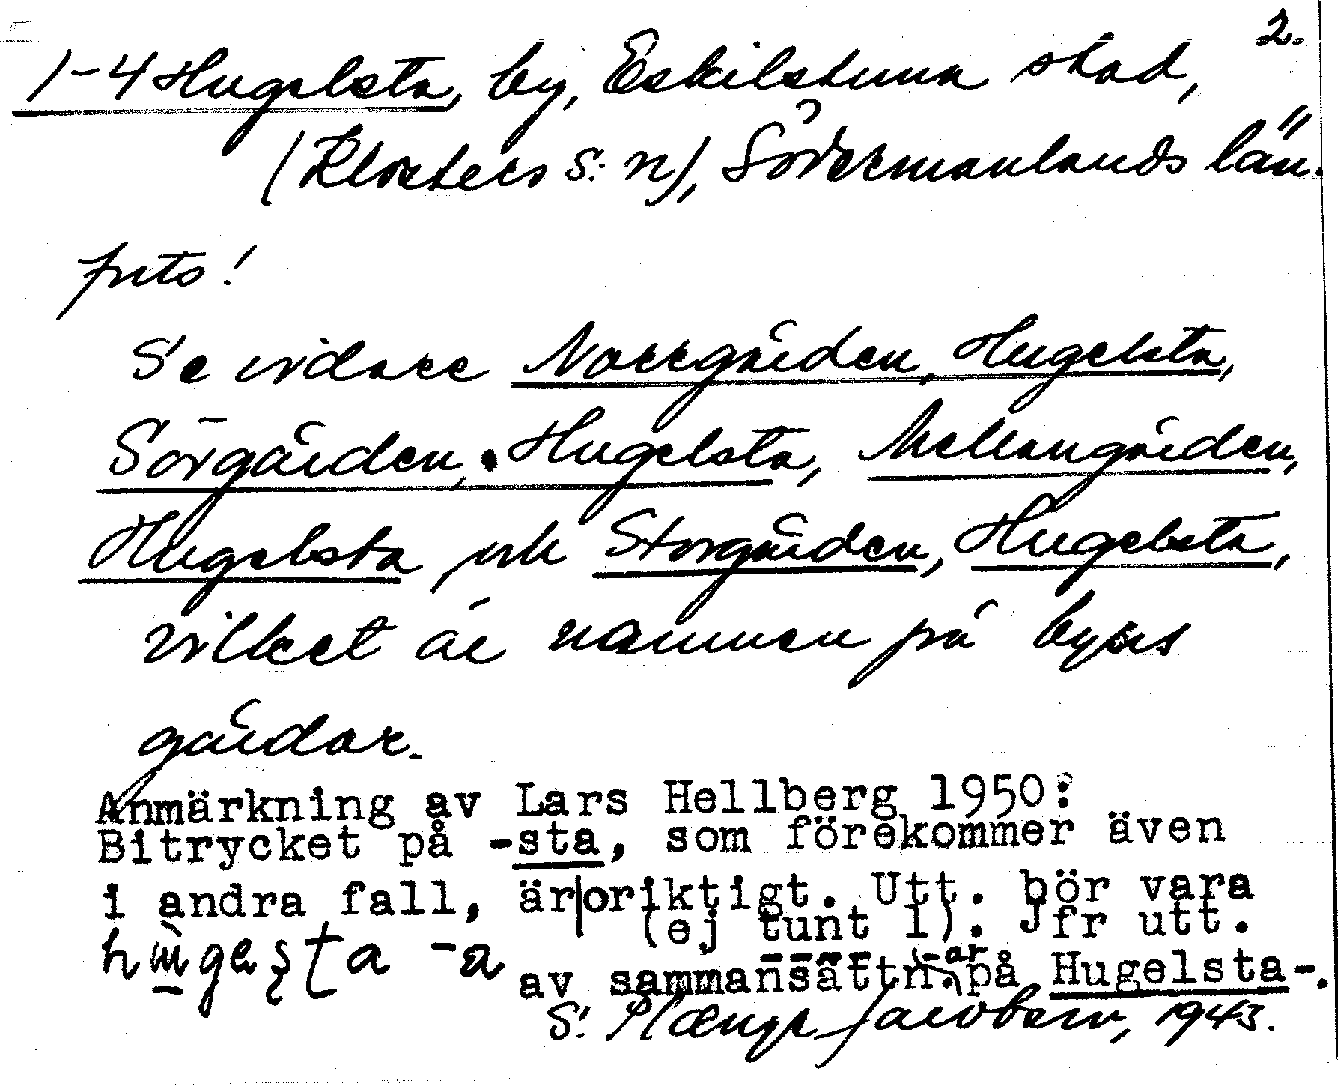 2.
1-4 Hugelsta, by, Eskilstuna stad,
(Klosters s:n), Södermanlands län.
frts!
Se vidare Norrgården, Hugelsta,
Sörgården, Hugelsta, Mellangården,
Hugelsta och Storgården, Hugelsta,
vilket är namnen på byns
gårdar.
Anmärkning av Lars Hellberg 1950:
Bitrycket på -sta, som förekommer även
i andra fall, är oriktigt. Utt. bör vara
(ej tunt l). Jfr utt.
av sammansättn.-ar på Hugelsta-.
S. Jacobson, 1943.